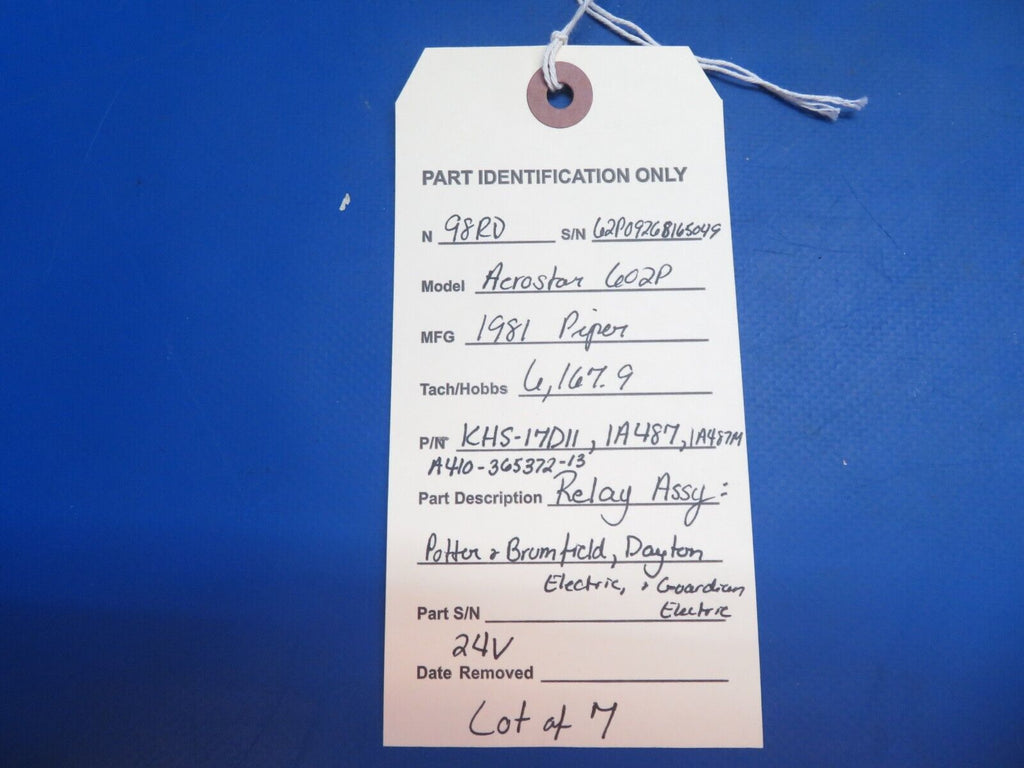 PART IDENTIFICATION ONLY
N 98RD S/N 62P09268165049
Model Aerostar 602P
MFG 1981 Piper
Tach/Hobbs 6,167.9
P/N KHS-17D11, 1A487, 1A487M
A410-365372-13
Part Description Relay Assy:
Potter & Brumfield, Dayton
Electric, & Guardian
Part S/N Electric
24V
Date Removed
Lot of 7